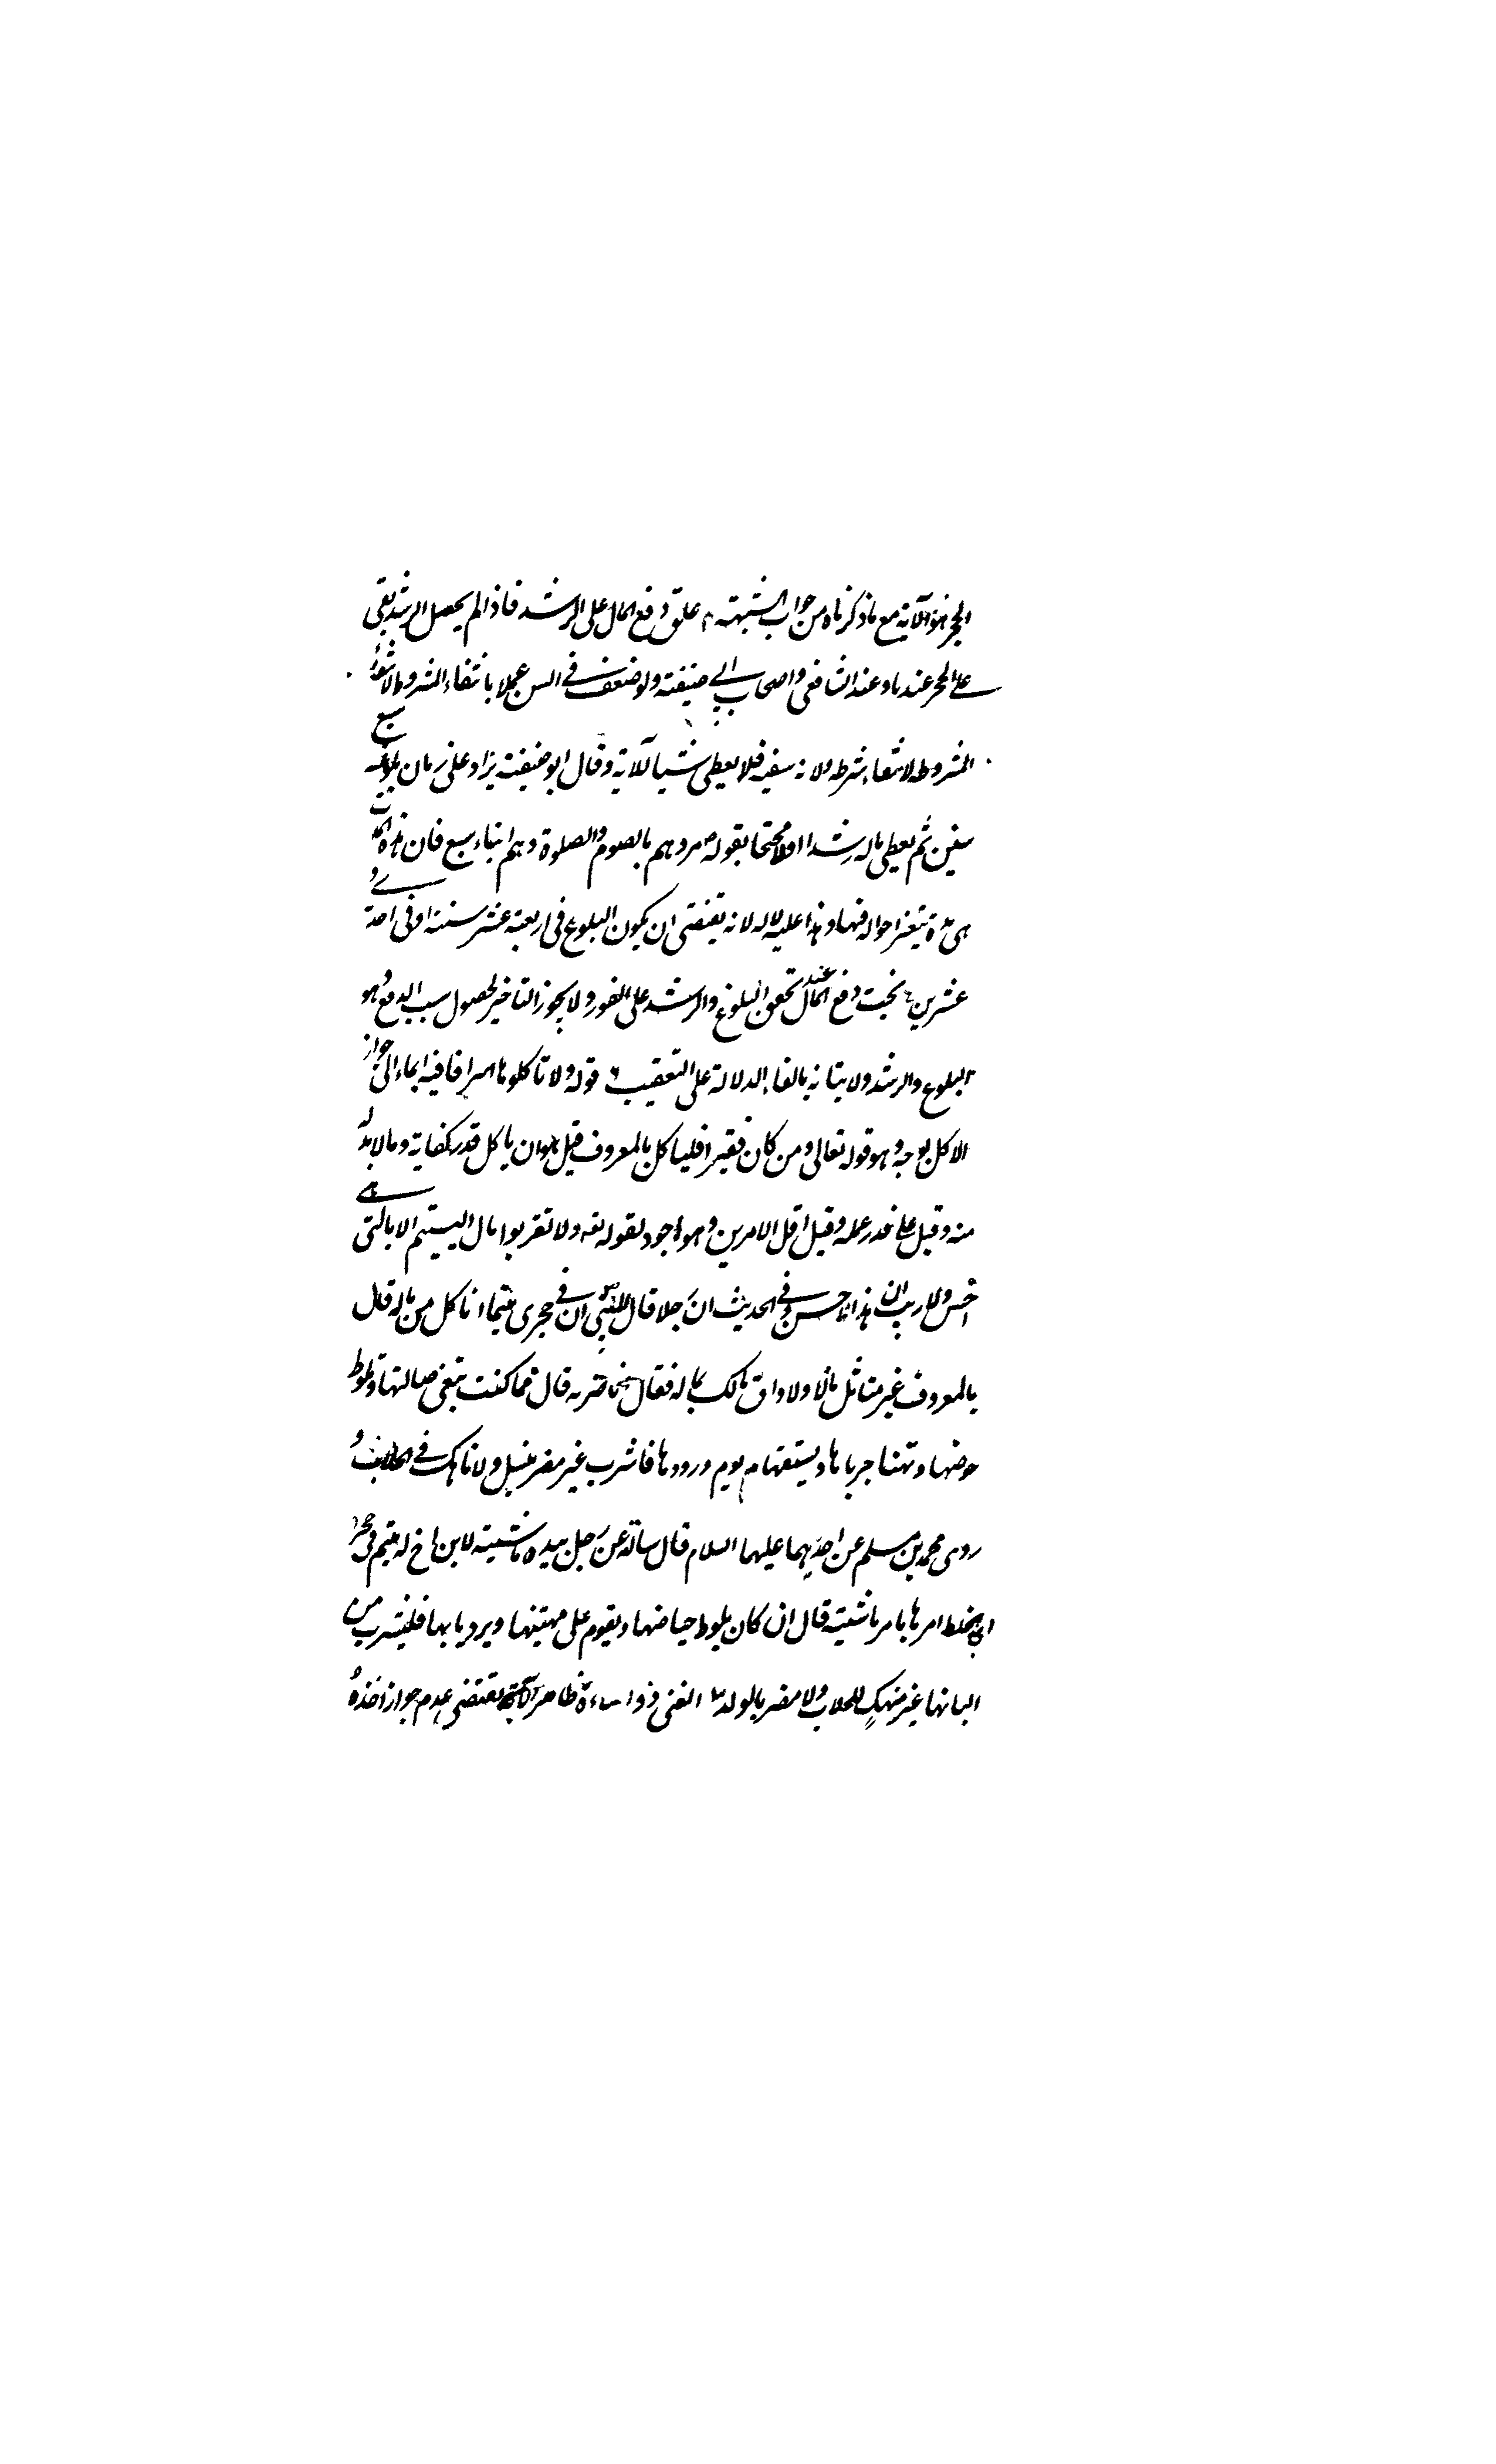 الحجر هذه الآية مع ما ذكرناه من جواب الشبهة ٣ علق دفع المال على الرشد فاذا لم يحصل الرشد بقى
على الحجر عندنا وعند الشافعي واصحاب ابي حنيفة ولو ضعف في السن عملا بانتفاء المشروط
المشروط لانتفاء شرطه ولانه سفيه فلا يعطى شيئا للآية وقال ابو حنيفة يزاد على زمان بلوغه سبع
سنين ثم يعطى ماله رشد اولا محتجا بقوله ص مروهم بالصوم والصلوة وهم ابناء سبع فان هذه
هي مدة تتغير احواله فيها وهذا عليه لا له لانه يقتضى ان يكون البلوغ في اربعة عشر سنة او في احدى و
عشرين ٤ يجب دفع المال عند تحقق البلوغ والرشد على الفور ولا يجوز التأخير لحصول سبب الدفع وهو
البلوغ والرشد ولاتيانه بالفاء الدلالة على التعقيب ٦ قوله ولا تأكلوها اسرافا فيه ايماء الى جواز
الاكل بوجه وهو قوله تعالى ومن كان فقيرا فليأكل بالمعروف قيل هو ان ياكل قدر كفايته وما لا بد له
منه وقيل على قدر عمله وقيل اقل الامرين وهو اجود لقوله تع ولا تقربوا مال اليتيم الا بالتي هي
احسن ولا ريب ان هذا احسن وفي الحديث ان رجلا قال للنبي ص ان في حجري يتيما اناكل من ماله قال
بالمعروف غير متأثل مالا ولا واق مالك بماله فقال فما ضربه قال مما كنت تبغى ضالتها وتلوط
حوضها وتهنأ جرباها ويسقيها يوم ورودها فاشرب غير مضر بنسل ولا ناهك في الحلاب و
روى محمد بن مسلم عن احدهما عليهما السلام قال سالته عن رجل بيده ماشية لابن اخ له يتيم في حجره
ايخلط امرها بامر ماشيته قال ان كان يلوط حياضها ويقوم على مهنتها ويرد نابها فليشرب من
البانها غير منهك للحلاب ولا مضر بالولد ٧ الغنى ظاهر الآية يقتضى عدم جواز اخذه